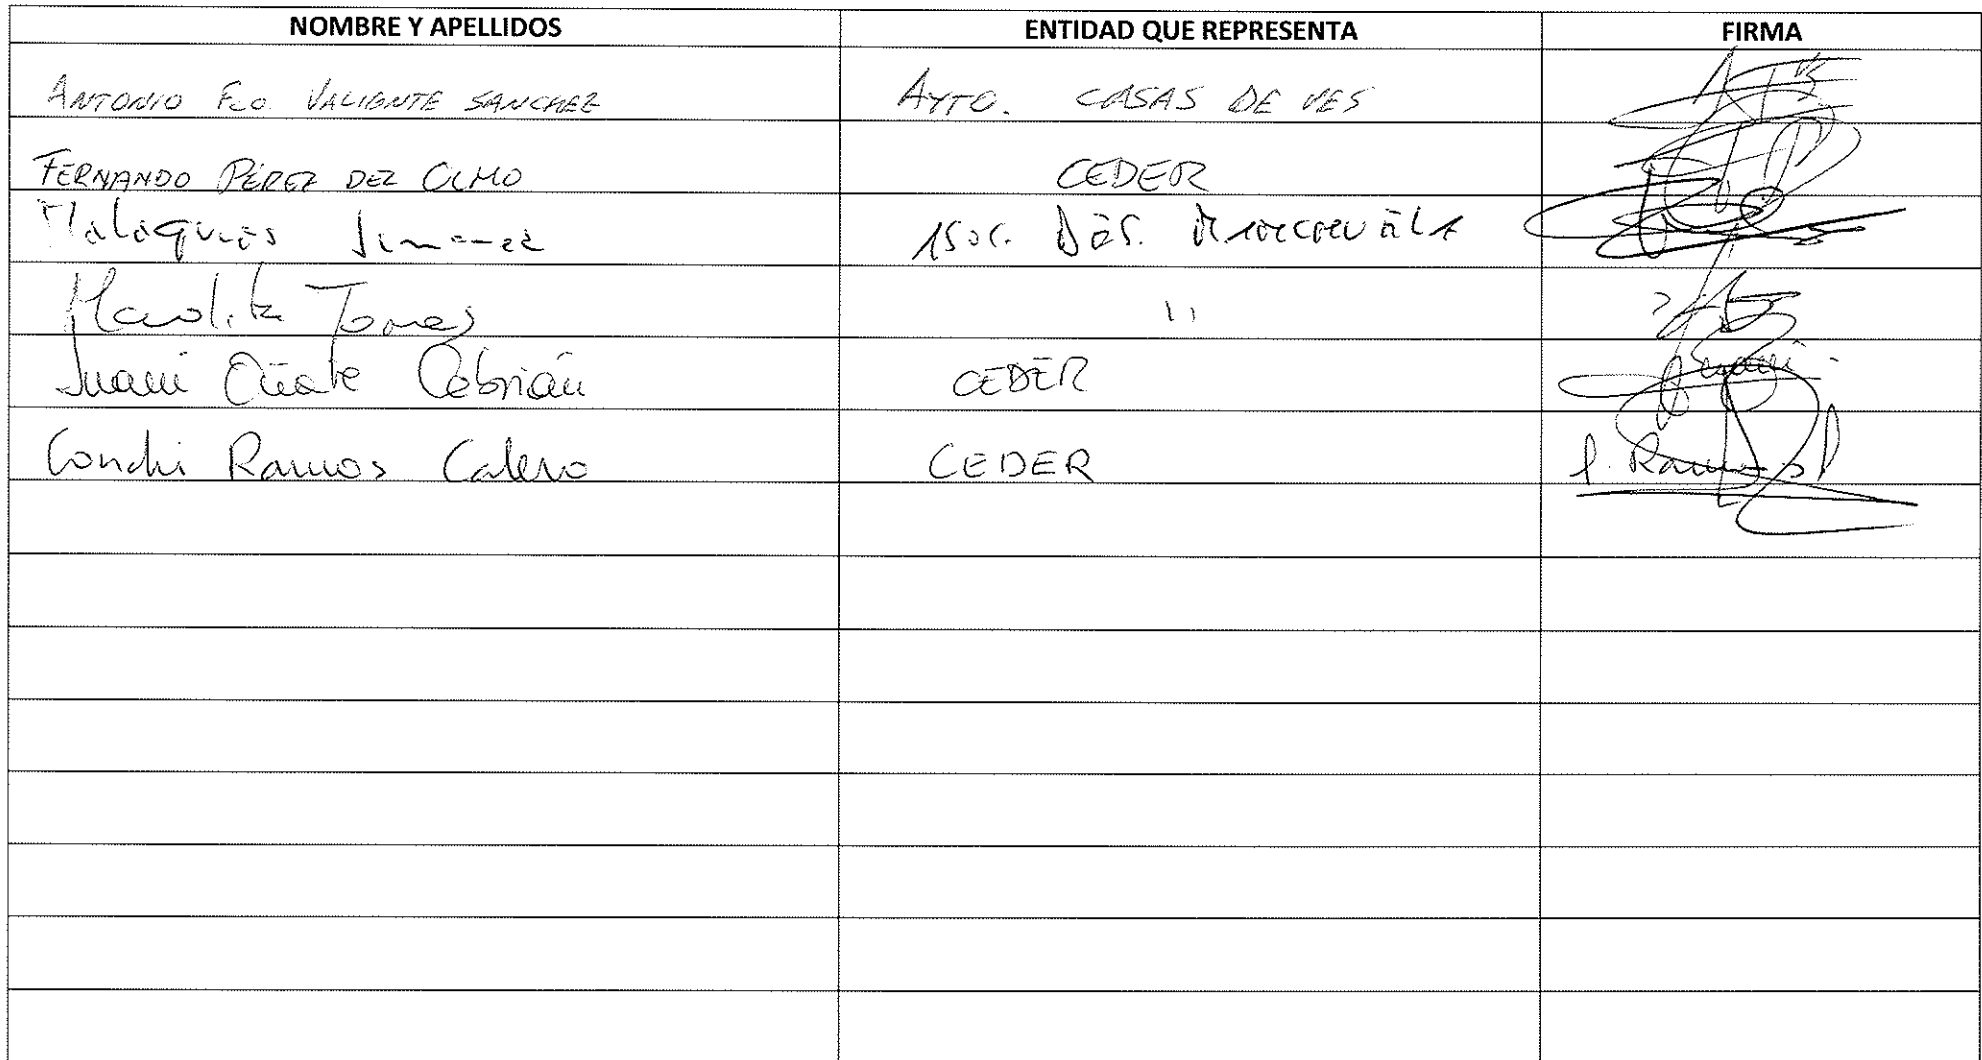 NOMBRE Y APELLIDOS ENTIDAD QUE REPRESENTA FIRMA
ANTONIO Fco. VALIENTE SANCHEZ AYTO. CASAS DE VES
FERNANDO PÉREZ DEL OLMO CEDER
Malaquías Jimenez ASOC. DES.
Tomas 11
Juani Oñate Cebrián CEDER Juani
Conchi Ramos Calero CEDER Ramos